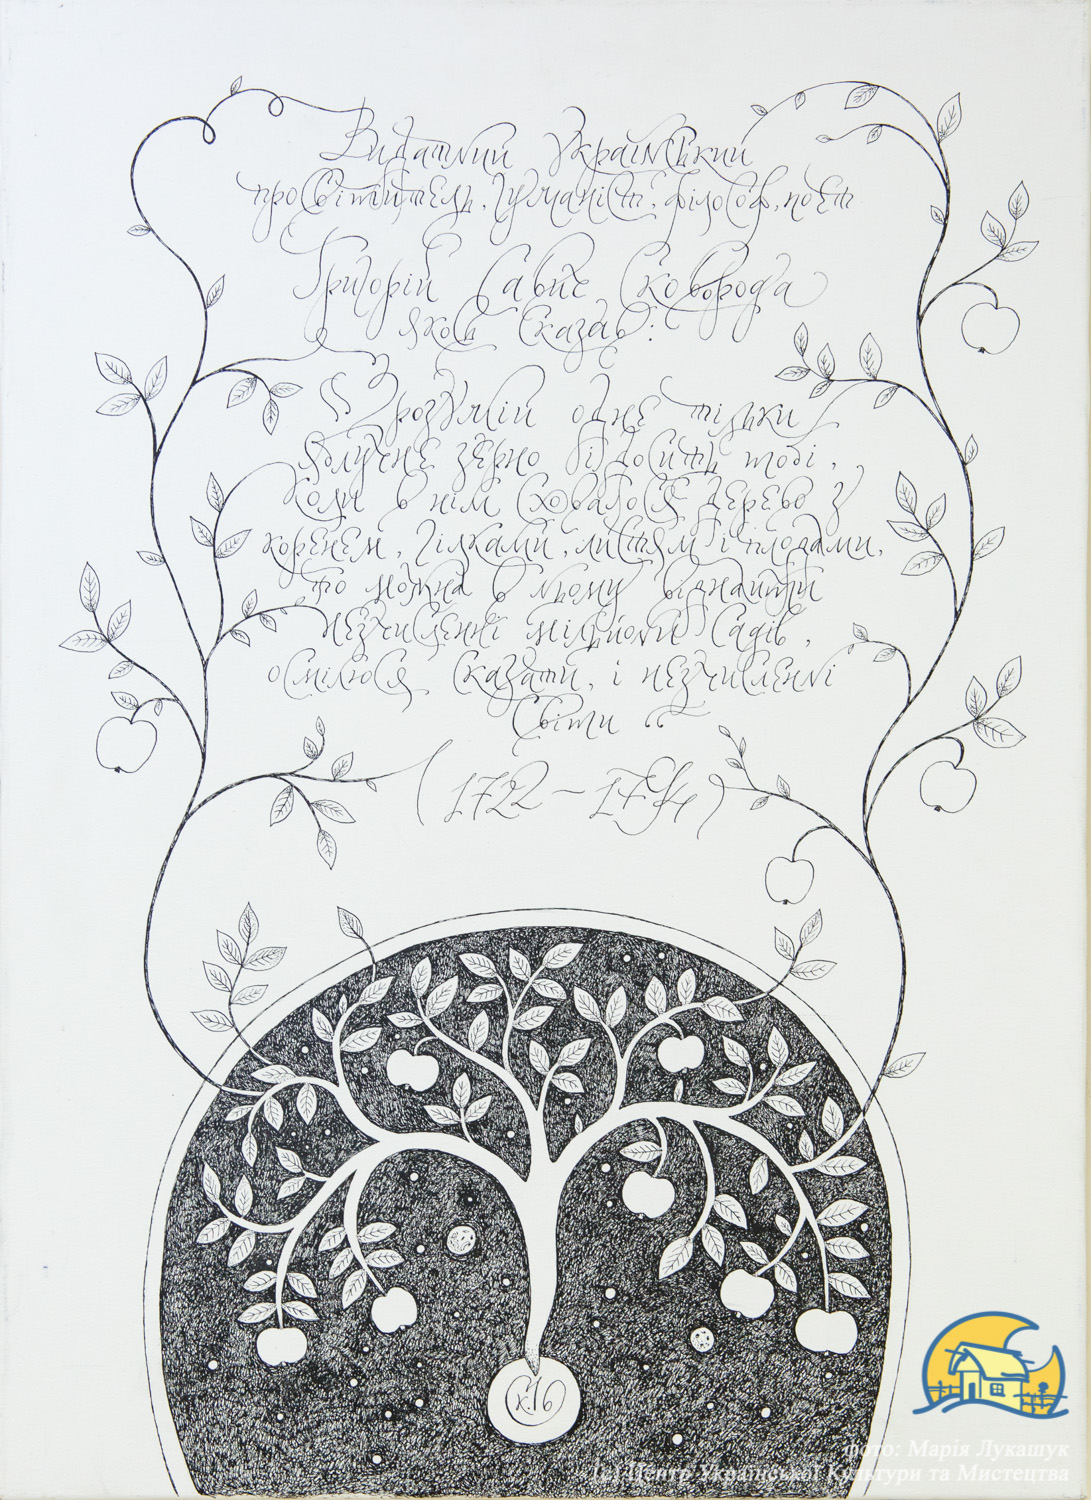 Видатний Український
просвітитель, гуманіст, філософ, поет
Григорій Савич Сковорода
якось сказав:
Зрозумій одне тільки
яблучне зерно і досить тобі,
Коли в нім сховалося дерево з
коренем, гілками, листям і плодами,
то можна в ньому віднайти
незчисленні мільйони садів,
осмілюся сказати, і незчисленні
світи “
(1722 – 1794)
К.16
фото: Марія Лукашук
(с) Центр Української Культури та Мистецтва